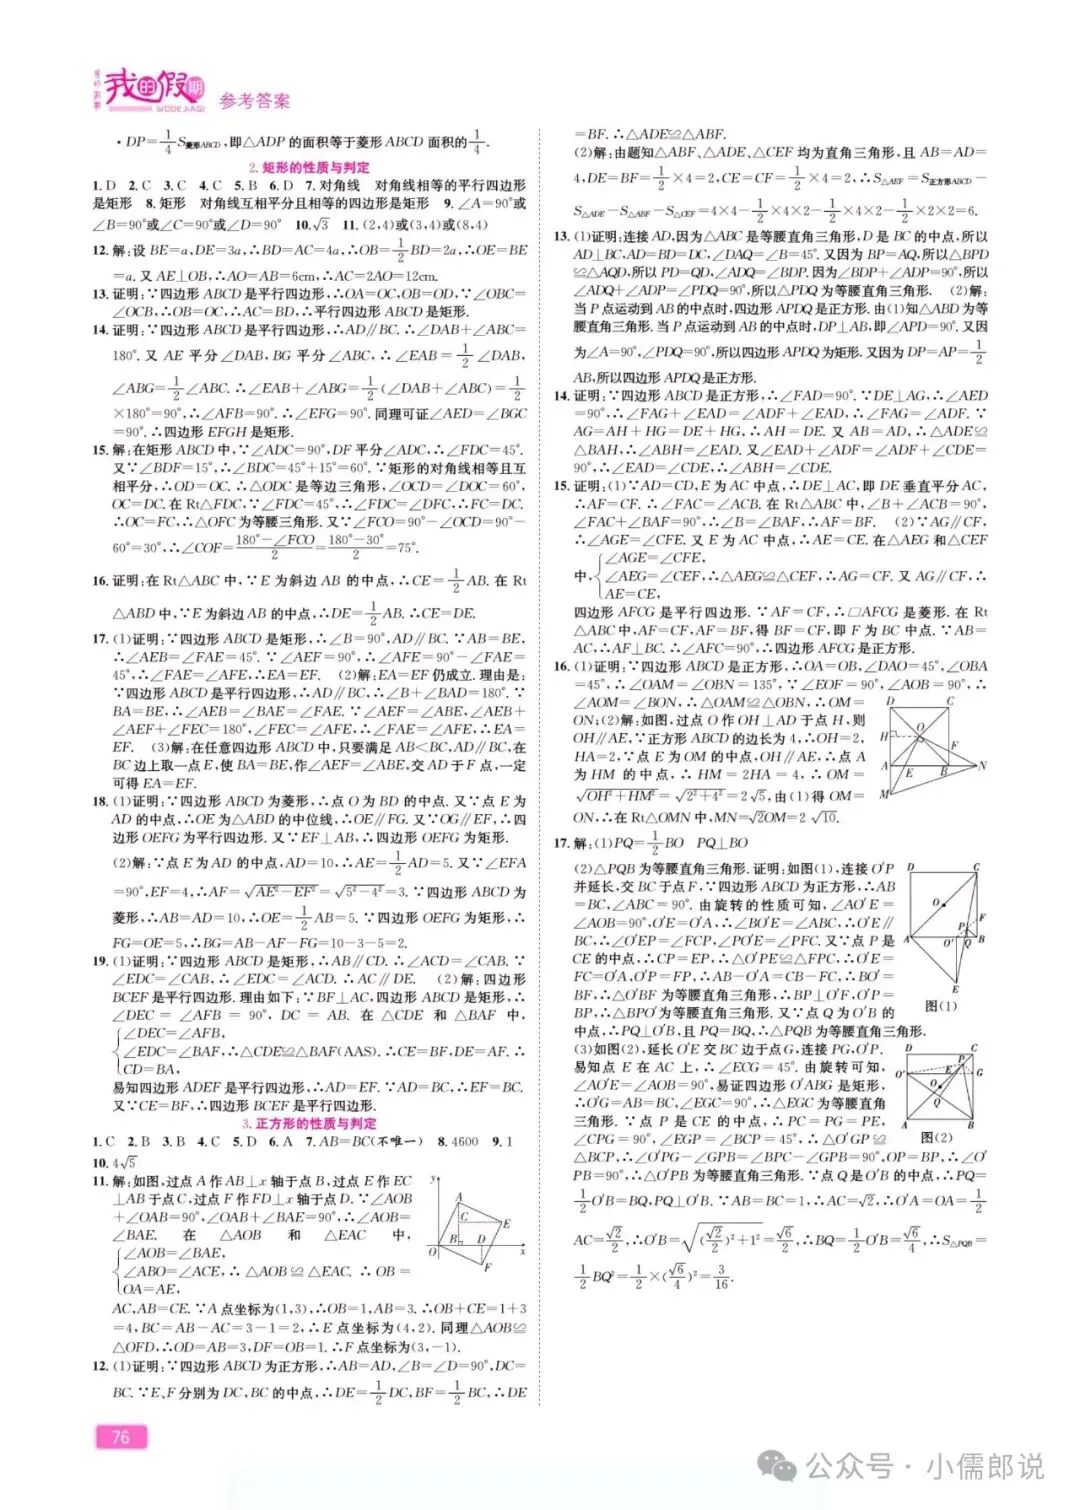 我的假期
WODEJIAQI
参考答案
·DP=1/4 S菱形ABCD,即△ADP的面积等于菱形ABCD面积的1/4.
2.矩形的性质与判定
1.D 2.C 3.C 4.C 5.B 6.D 7.对角线 对角线相等的平行四边形
是矩形 8.矩形 对角线互相平分且相等的四边形是矩形 9.∠A=90°或
∠B=90°或∠C=90°或∠D=90° 10.√3 11.(2,4)或(3,4)或(8,4)
12.解:设BE=a,DE=3a,∴BD=AC=4a,∴OB=1/2 BD=2a,∴OE=BE
=a.又AE⊥OB,∴AO=AB=6cm,∴AC=2AO=12cm.
13.证明:∵四边形ABCD是平行四边形,∴OA=OC,OB=OD,∵∠OBC=
∠OCB,∴OB=OC,∴AC=BD,∴平行四边形ABCD是矩形.
14.证明:∵四边形ABCD是平行四边形,∴AD∥BC.∴∠DAB+∠ABC=
180°.又AE平分∠DAB,BG平分∠ABC,∴∠EAB=1/2∠DAB,
∠ABG=1/2∠ABC.∴∠EAB+∠ABG=1/2(∠DAB+∠ABC)=1/2
×180°=90°,∴∠AFB=90°.∴∠EFG=90°.同理可证∠AED=∠BGC
=90°.∴四边形EFGH是矩形.
15.解:在矩形ABCD中,∵∠ADC=90°,DF平分∠ADC,∴∠FDC=45°.
又∵∠BDF=15°,∴∠BDC=45°+15°=60°.∵矩形的对角线相等且互
相平分,∴OD=OC.∴△ODC是等边三角形,∠OCD=∠DOC=60°,
OC=DC.在Rt△FDC,∵∠FDC=45°,∴∠FDC=∠DFC,∴FC=DC.
∴OC=FC,∴△OFC为等腰三角形.又∵∠FCO=90°-∠OCD=90°-
60°=30°,∴∠COF=(180°-∠FCO)/2=(180°-30°)/2=75°.
16.证明:在Rt△ABC中,∵E为斜边AB的中点,∴CE=1/2 AB.在Rt
△ABD中,∵E为斜边AB的中点,∴DE=1/2 AB.∴CE=DE.
17.(1)证明:∵四边形ABCD是矩形,∴∠B=90°,AD∥BC.∵AB=BE,
∴∠AEB=∠FAE=45°.∵∠AEF=90°,∴∠AFE=90°-∠FAE=
45°,∴∠FAE=∠AFE,∴EA=EF. (2)解:EA=EF仍成立.理由是:
∵四边形ABCD是平行四边形,∴AD∥BC,∴∠B+∠BAD=180°.∵
BA=BE,∴∠AEB=∠BAE=∠FAE.∵∠AEF=∠ABE,∠AEB+
∠AEF+∠FEC=180°,∠FEC=∠AFE,∴∠FAE=∠AFE,∴EA=
EF. (3)解:在任意四边形ABCD中,只要满足AB<BC,AD∥BC,在
BC边上取一点E,使BA=BE,作∠AEF=∠ABE,交AD于F点,一定
可得EA=EF.
18.(1)证明:∵四边形ABCD为菱形,∴点O为BD的中点.又∵点E为
AD的中点,∴OE为△ABD的中位线,∴OE∥FG.又∵OG∥EF,∴四
边形OEFG为平行四边形.又∵EF⊥AB,∴四边形OEFG为矩形.
(2)解:∵点E为AD的中点,AD=10,∴AE=1/2 AD=5.又∵∠EFA
=90°,EF=4,∴AF=√(AE²-EF²)=√(5²-4²)=3.∵四边形ABCD为
菱形,∴AB=AD=10,∴OE=1/2 AB=5.∵四边形OEFG为矩形,∴
FG=OE=5,∴BG=AB-AF-FG=10-3-5=2.
19.(1)证明:∵四边形ABCD是矩形,∴AB∥CD.∴∠ACD=∠CAB.∵
∠EDC=∠CAB,∴∠EDC=∠ACD.∴AC∥DE. (2)解:四边形
BCEF是平行四边形.理由如下:∵BF⊥AC,四边形ABCD是矩形,∴
∠DEC=∠AFB=90°,DC=AB.在△CDE和△BAF中,
∠DEC=∠AFB,
∠EDC=∠BAF,∴△CDE≌△BAF(AAS).∴CE=BF,DE=AF.∴
CD=BA,
易知四边形ADEF是平行四边形,∴AD=EF.∵AD=BC,∴EF=BC.
又∵CE=BF,∴四边形BCEF是平行四边形.
3.正方形的性质与判定
1.C 2.B 3.B 4.C 5.D 6.A 7.AB=BC(不唯一) 8.4600 9.1
10.4√5
11.解:如图,过点A作AB⊥x轴于点B,过点E作EC
⊥AB于点C,过点F作FD⊥x轴于点D.∵∠AOB
+∠OAB=90°,∠OAB+∠BAE=90°,∴∠AOB=
∠BAE.在△AOB和△EAC中,
∠AOB=∠BAE,
∠ABO=∠ACE,∴△AOB≌△EAC.∴OB=
OA=AE,
y
A
C
E
B
D
O
x
F
AC,AB=CE.∵A点坐标为(1,3),∴OB=1,AB=3.∴OB+CE=1+3
=4,BC=AB-AC=3-1=2,∴E点坐标为(4,2).同理△AOB≌
△OFD,∴OD=AB=3,DF=OB=1.∴F点坐标为(3,-1).
12.(1)证明:∵四边形ABCD为正方形,∴AB=AD,∠B=∠D=90°,DC=
BC.∵E、F分别为DC,BC的中点,∴DE=1/2 DC,BF=1/2 BC,∴DE
=BF.∴△ADE≌△ABF.
(2)解:由题知△ABF、△ADE、△CEF均为直角三角形,且AB=AD=
4,DE=BF=1/2×4=2,CE=CF=1/2×4=2,∴S△AEF=S正方形ABCD-
S△ADE-S△ABF-S△CEF=4×4-1/2×4×2-1/2×4×2-1/2×2×2=6.
13.(1)证明:连接AD,因为△ABC是等腰直角三角形,D是BC的中点,所以
AD⊥BC,AD=BD=DC,∠DAQ=∠B=45°.又因为BP=AQ,所以△BPD
≌△AQD,所以PD=QD,∠ADQ=∠BDP.因为∠BDP+∠ADP=90°,所以
∠ADQ+∠ADP=∠PDQ=90°,所以△PDQ为等腰直角三角形. (2)解:
当P点运动到AB的中点时,四边形APDQ是正方形.由(1)知△ABD为等
腰直角三角形.当P点运动到AB的中点时,DP⊥AB,即∠APD=90°.又因
为∠A=90°,∠PDQ=90°,所以四边形APDQ为矩形.又因为DP=AP=1/2
AB,所以四边形APDQ是正方形.
14.证明:∵四边形ABCD是正方形,∴∠FAD=90°.∵DE⊥AG,∴∠AED
=90°,∴∠FAG+∠EAD=∠ADF+∠EAD,∴∠FAG=∠ADF.∵
AG=AH+HG=DE+HG,∴AH=DE.又AB=AD,∴△ADE≌
△BAH,∴∠ABH=∠EAD.又∠EAD+∠ADF=∠ADF+∠CDE=
90°,∴∠EAD=∠CDE,∴∠ABH=∠CDE.
15.证明:(1)∵AD=CD,E为AC中点,∴DE⊥AC,即DE垂直平分AC,
∴AF=CF.∴∠FAC=∠ACB.在Rt△ABC中,∠B+∠ACB=90°,
∠FAC+∠BAF=90°,∴∠B=∠BAF,∴AF=BF. (2)∵AG∥CF,
∴∠AGE=∠CFE.又E为AC中点,∴AE=CE.在△AEG和△CEF
∠AGE=∠CFE,
中,∠AEG=∠CEF,∴△AEG≌△CEF,∴AG=CF.又AG∥CF,∴
AE=CE,
四边形AFCG是平行四边形.∵AF=CF,∴□AFCG是菱形.在Rt
△ABC中,AF=CF,AF=BF,得BF=CF,即F为BC中点.∵AB=
AC,∴AF⊥BC.∴∠AFC=90°,∴四边形AFCG是正方形.
16.(1)证明:∵四边形ABCD是正方形,∴OA=OB,∠DAO=45°,∠OBA
=45°,∴∠OAM=∠OBN=135°,∵∠EOF=90°,∠AOB=90°,∴
∠AOM=∠BON,∴△OAM≌△OBN,∴OM=
ON;(2)解:如图,过点O作OH⊥AD于点H,则
OH∥AE,∵正方形ABCD的边长为4,∴OH=2,
HA=2,∵点E为OM的中点,OH∥AE,∴点A
为HM的中点,∴HM=2HA=4,∴OM=
√(OH²+HM²)=√(2²+4²)=2√5,由(1)得OM=
ON,∴在Rt△OMN中,MN=√2OM=2√10.
D
C
O
H
F
A
E
B
N
M
17.解:(1)PQ=1/2 BO PQ⊥BO
(2)△PQB为等腰直角三角形.证明:如图(1),连接O′P
并延长,交BC于点F,∵四边形ABCD为正方形,∴AB
=BC,∠ABC=90°.由旋转的性质可知,∠AO′E=
∠AOB=90°,O′E=O′A,∴∠BO′E=∠ABC,∴O′E∥
BC,∴∠O′EP=∠FCP,∠PO′E=∠PFC.又∵点P是
CE的中点,∴CP=EP,∴△O′PE≌△FPC,∴O′E=
FC=O′A,O′P=FP,∴AB-O′A=CB-FC,∴BO′=
BF,∴△O′BF为等腰直角三角形,∴BP⊥O′F,O′P=
BP,∴△BPO′为等腰直角三角形.又∵点Q为O′B的
中点,∴PQ⊥O′B,且PQ=BQ,∴△PQB为等腰直角三角形.
D
C
O
F
P
A
O′
Q
B
E
图(1)
(3)如图(2),延长O′E交BC边于点G,连接PG,O′P.
易知点E在AC上,∴∠ECG=45°.由旋转可知,
∠AO′E=∠AOB=90°,易证四边形O′ABG是矩形,
∴O′G=AB=BC,∠EGC=90°,∴△EGC为等腰直角
三角形.∵点P是CE的中点,∴PC=PG=PE,
∠CPG=90°,∠EGP=∠BCP=45°,∴△O′GP≌
△BCP,∴∠O′PG-∠GPB=∠BPC-∠GPB=90°,OP=BP,∴∠O′
PB=90°,∴△O′PB为等腰直角三角形.∵点Q是O′B的中点,∴PQ=
1/2 O′B=BQ,PQ⊥O′B.∵AB=BC=1,∴AC=√2,∴O′A=OA=1/2
AC=√2/2,∴O′B=√((√2/2)²+1²)=√6/2,∴BQ=1/2 O′B=√6/4,∴S△PQB=
1/2 BQ²=1/2×(√6/4)²=3/16.
D
C
P
O′
E
G
O
Q
A
B
图(2)
76
公众号·小儒郎说